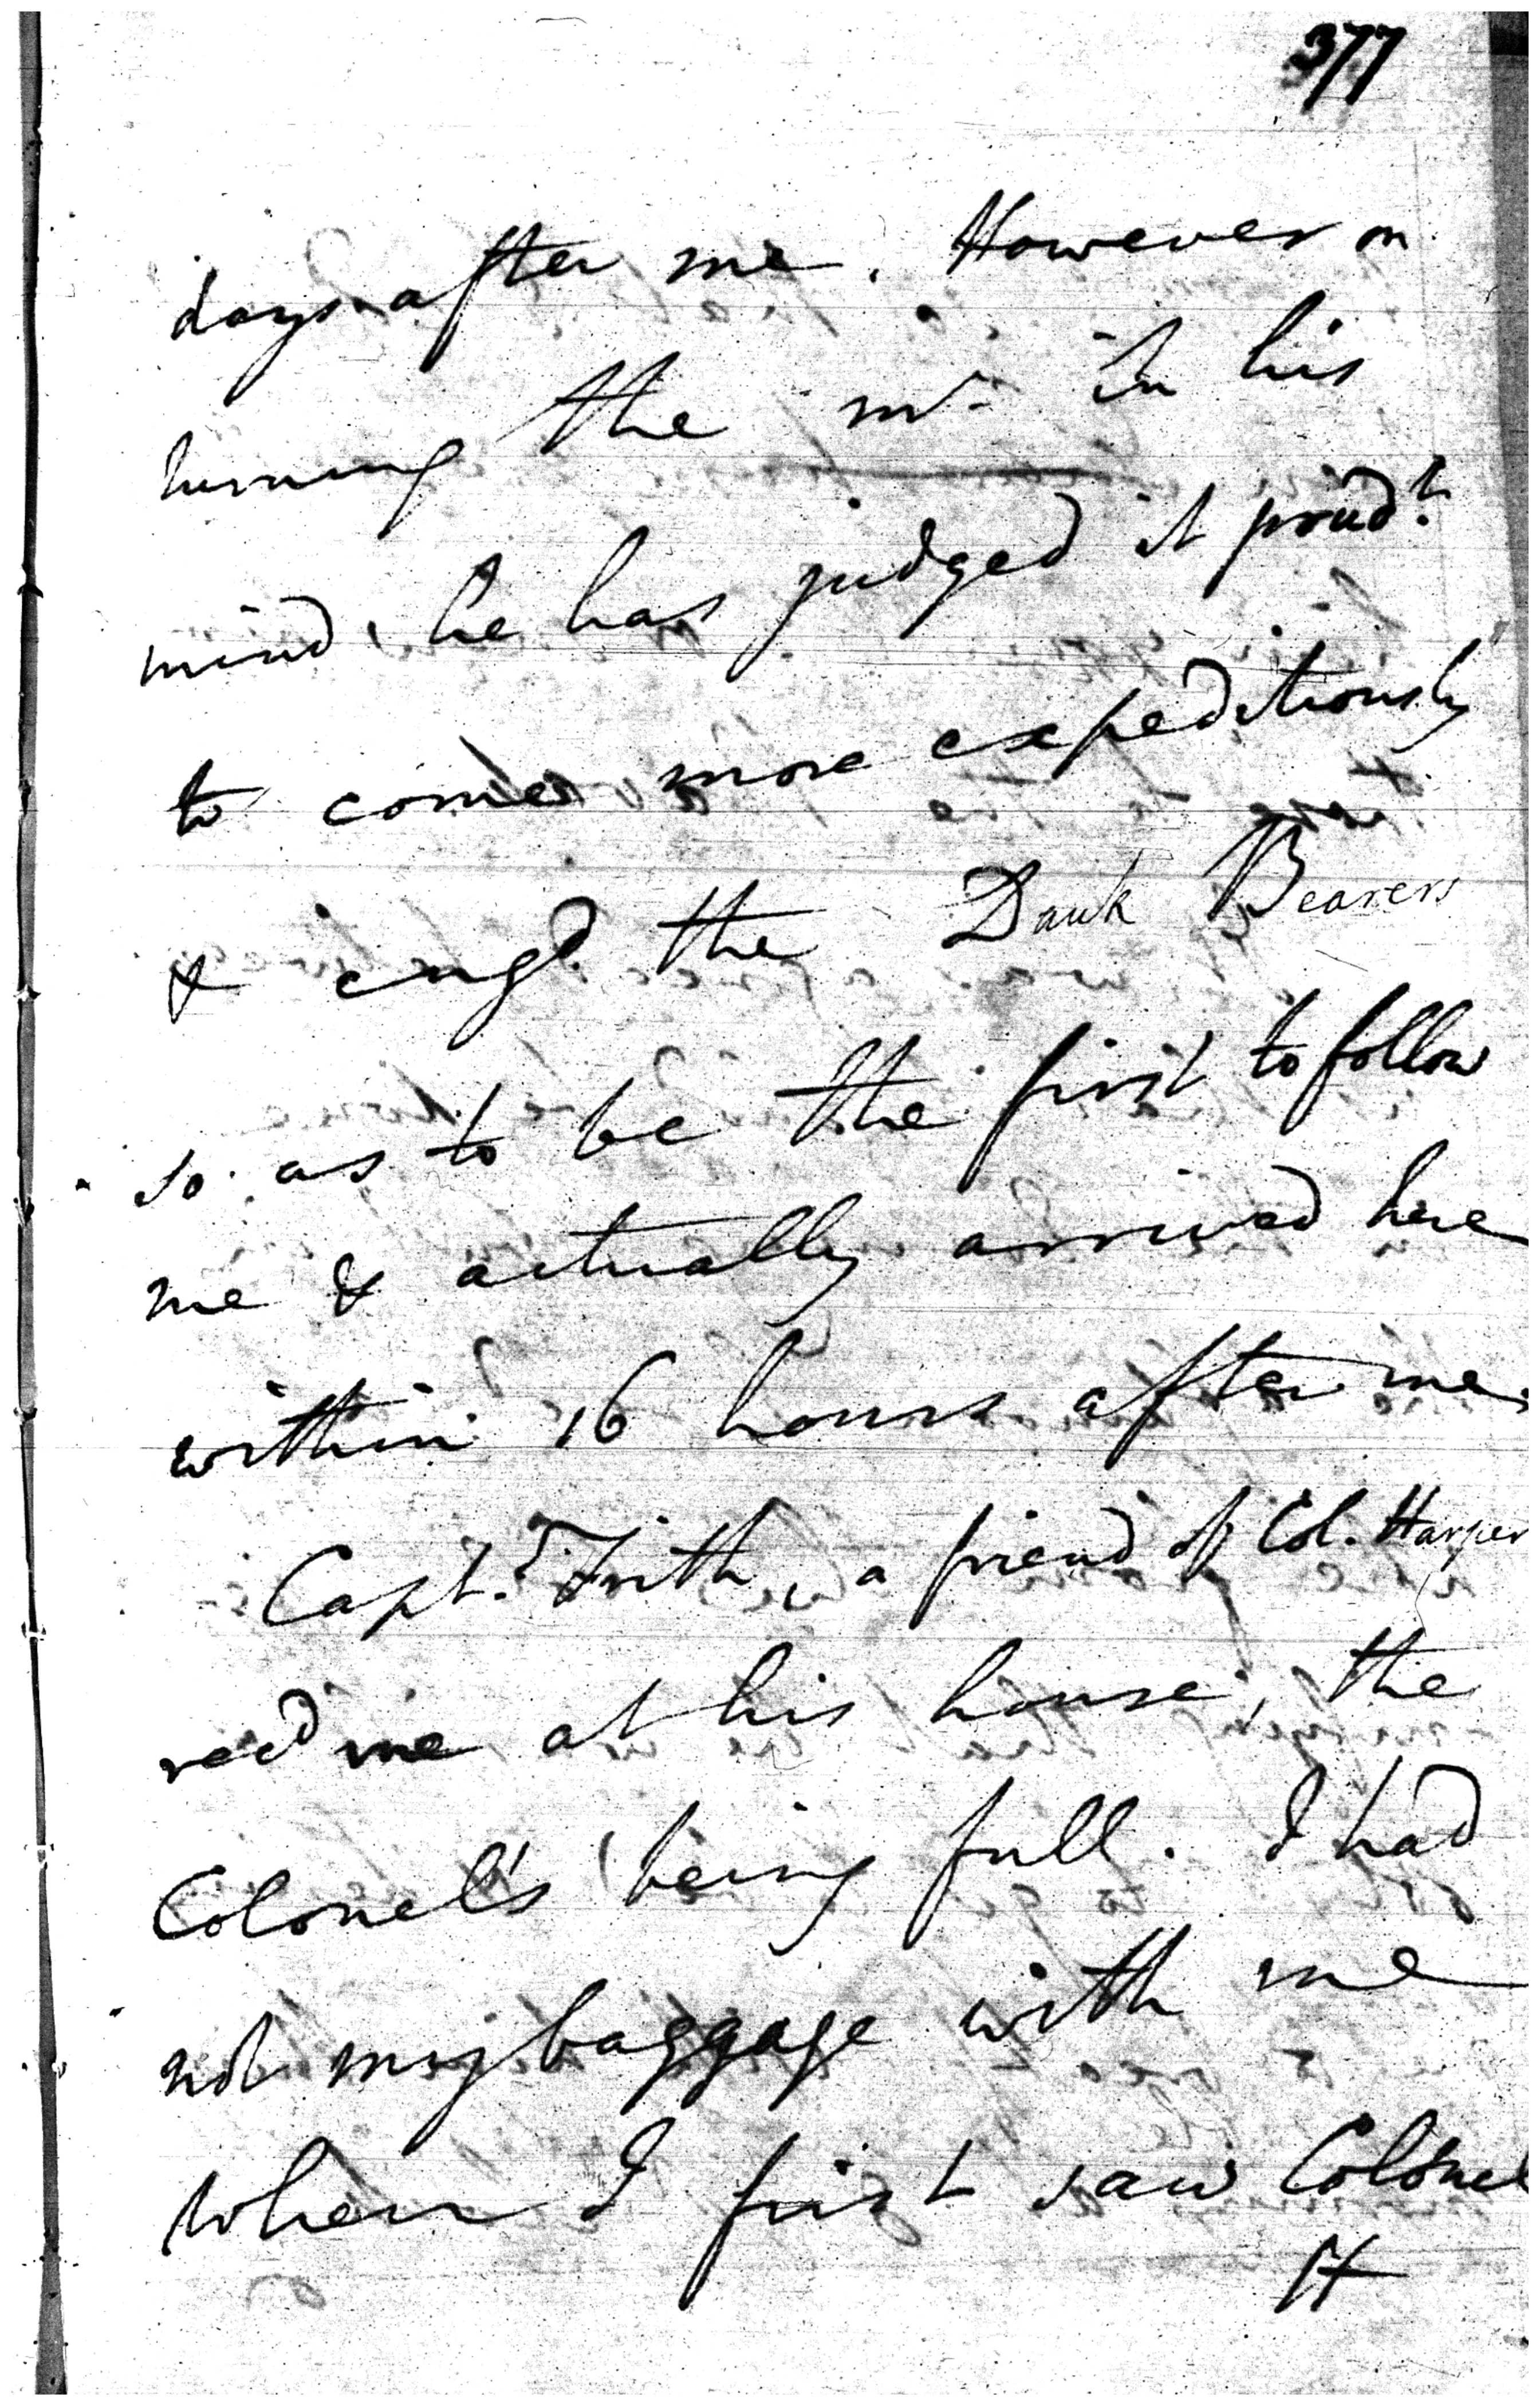 377
days after me. However on
turning the mr. in his
mind, he has judged it prudt.
to come more expeditiously
& engd. the Dauk Bearers
so as to be the first to follow
me & actually arrived here
within 16 hours after me.
Capt. Frith, a friend of Col. Harper
recd me at his house, the
Colonel's being full. I had
not my baggage with me
when I first saw Colonel
H